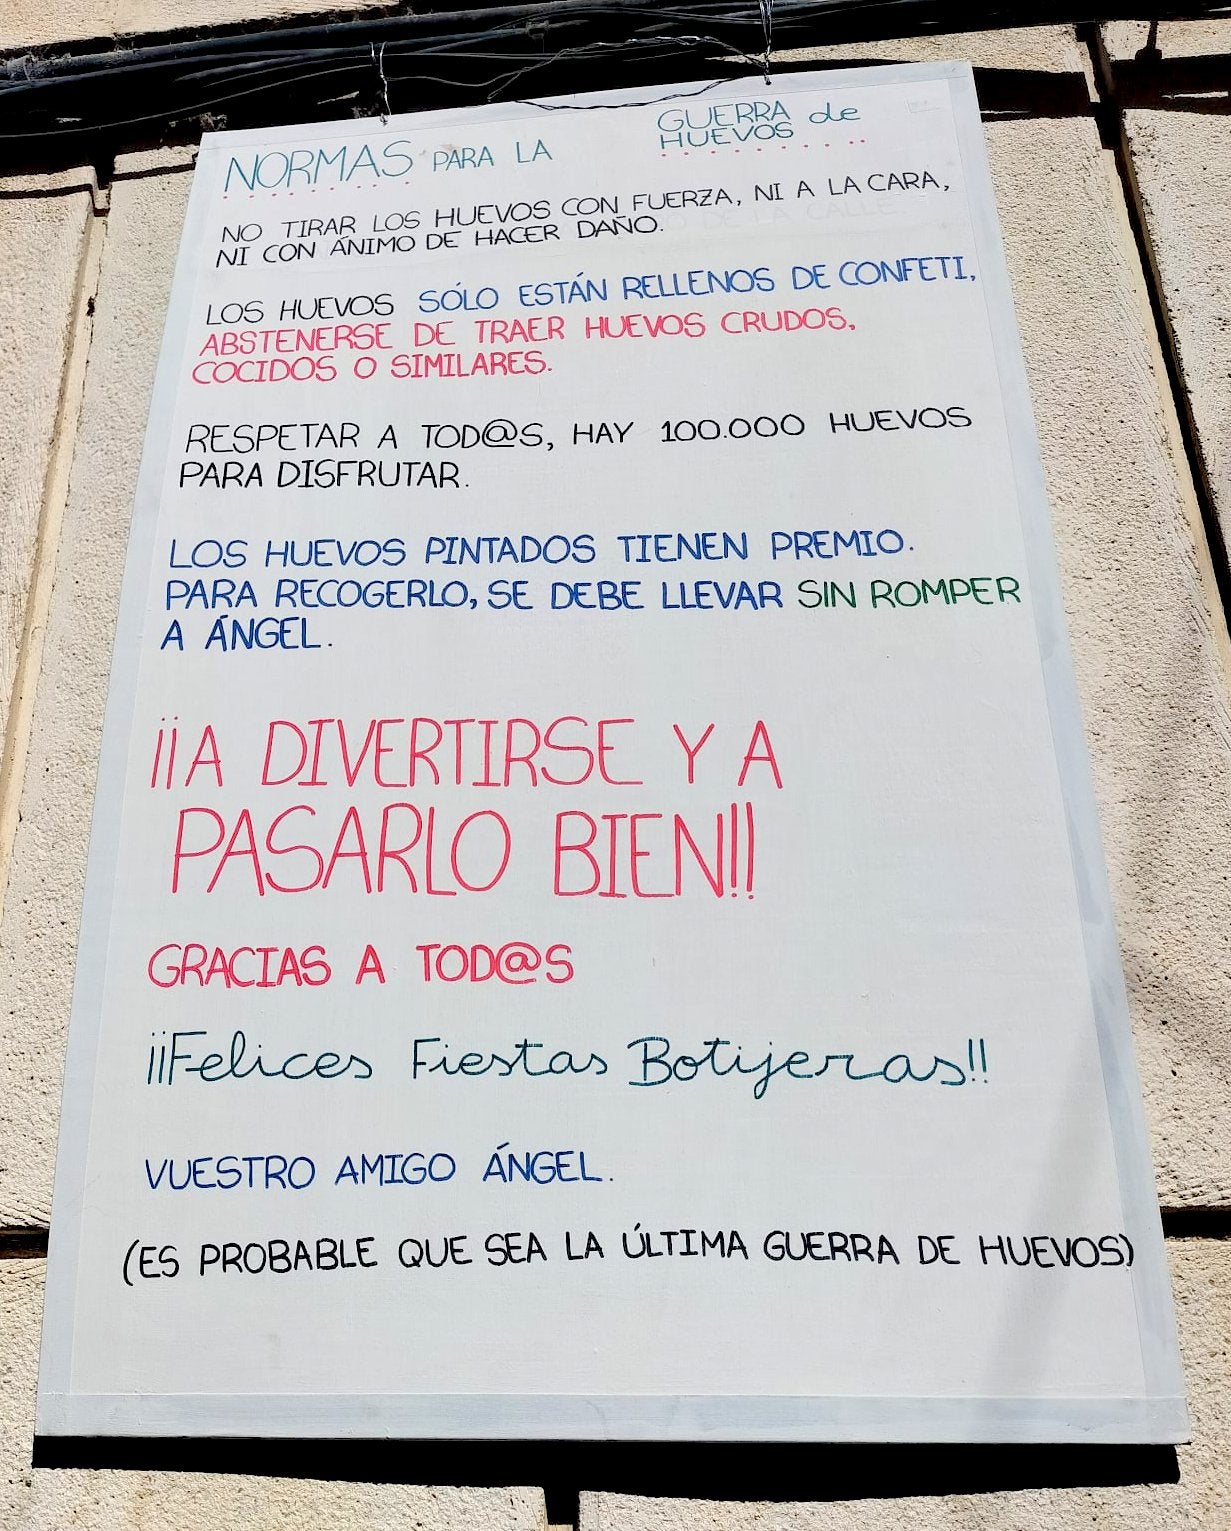 NORMAS PARA LA GUERRA de HUEVOS
NO TIRAR LOS HUEVOS CON FUERZA, NI A LA CARA,
NI CON ÁNIMO DE HACER DAÑO.
LOS HUEVOS SÓLO ESTÁN RELLENOS DE CONFETI,
ABSTENERSE DE TRAER HUEVOS CRUDOS,
COCIDOS O SIMILARES.
RESPETAR A TOD@S, HAY 100.000 HUEVOS
PARA DISFRUTAR.
LOS HUEVOS PINTADOS TIENEN PREMIO.
PARA RECOGERLO, SE DEBE LLEVAR SIN ROMPER
A ÁNGEL.
¡¡A DIVERTIRSE Y A
PASARLO BIEN!!
GRACIAS A TOD@S
¡¡Felices Fiestas Botijeras!!
VUESTRO AMIGO ÁNGEL.
(ES PROBABLE QUE SEA LA ÚLTIMA GUERRA DE HUEVOS)